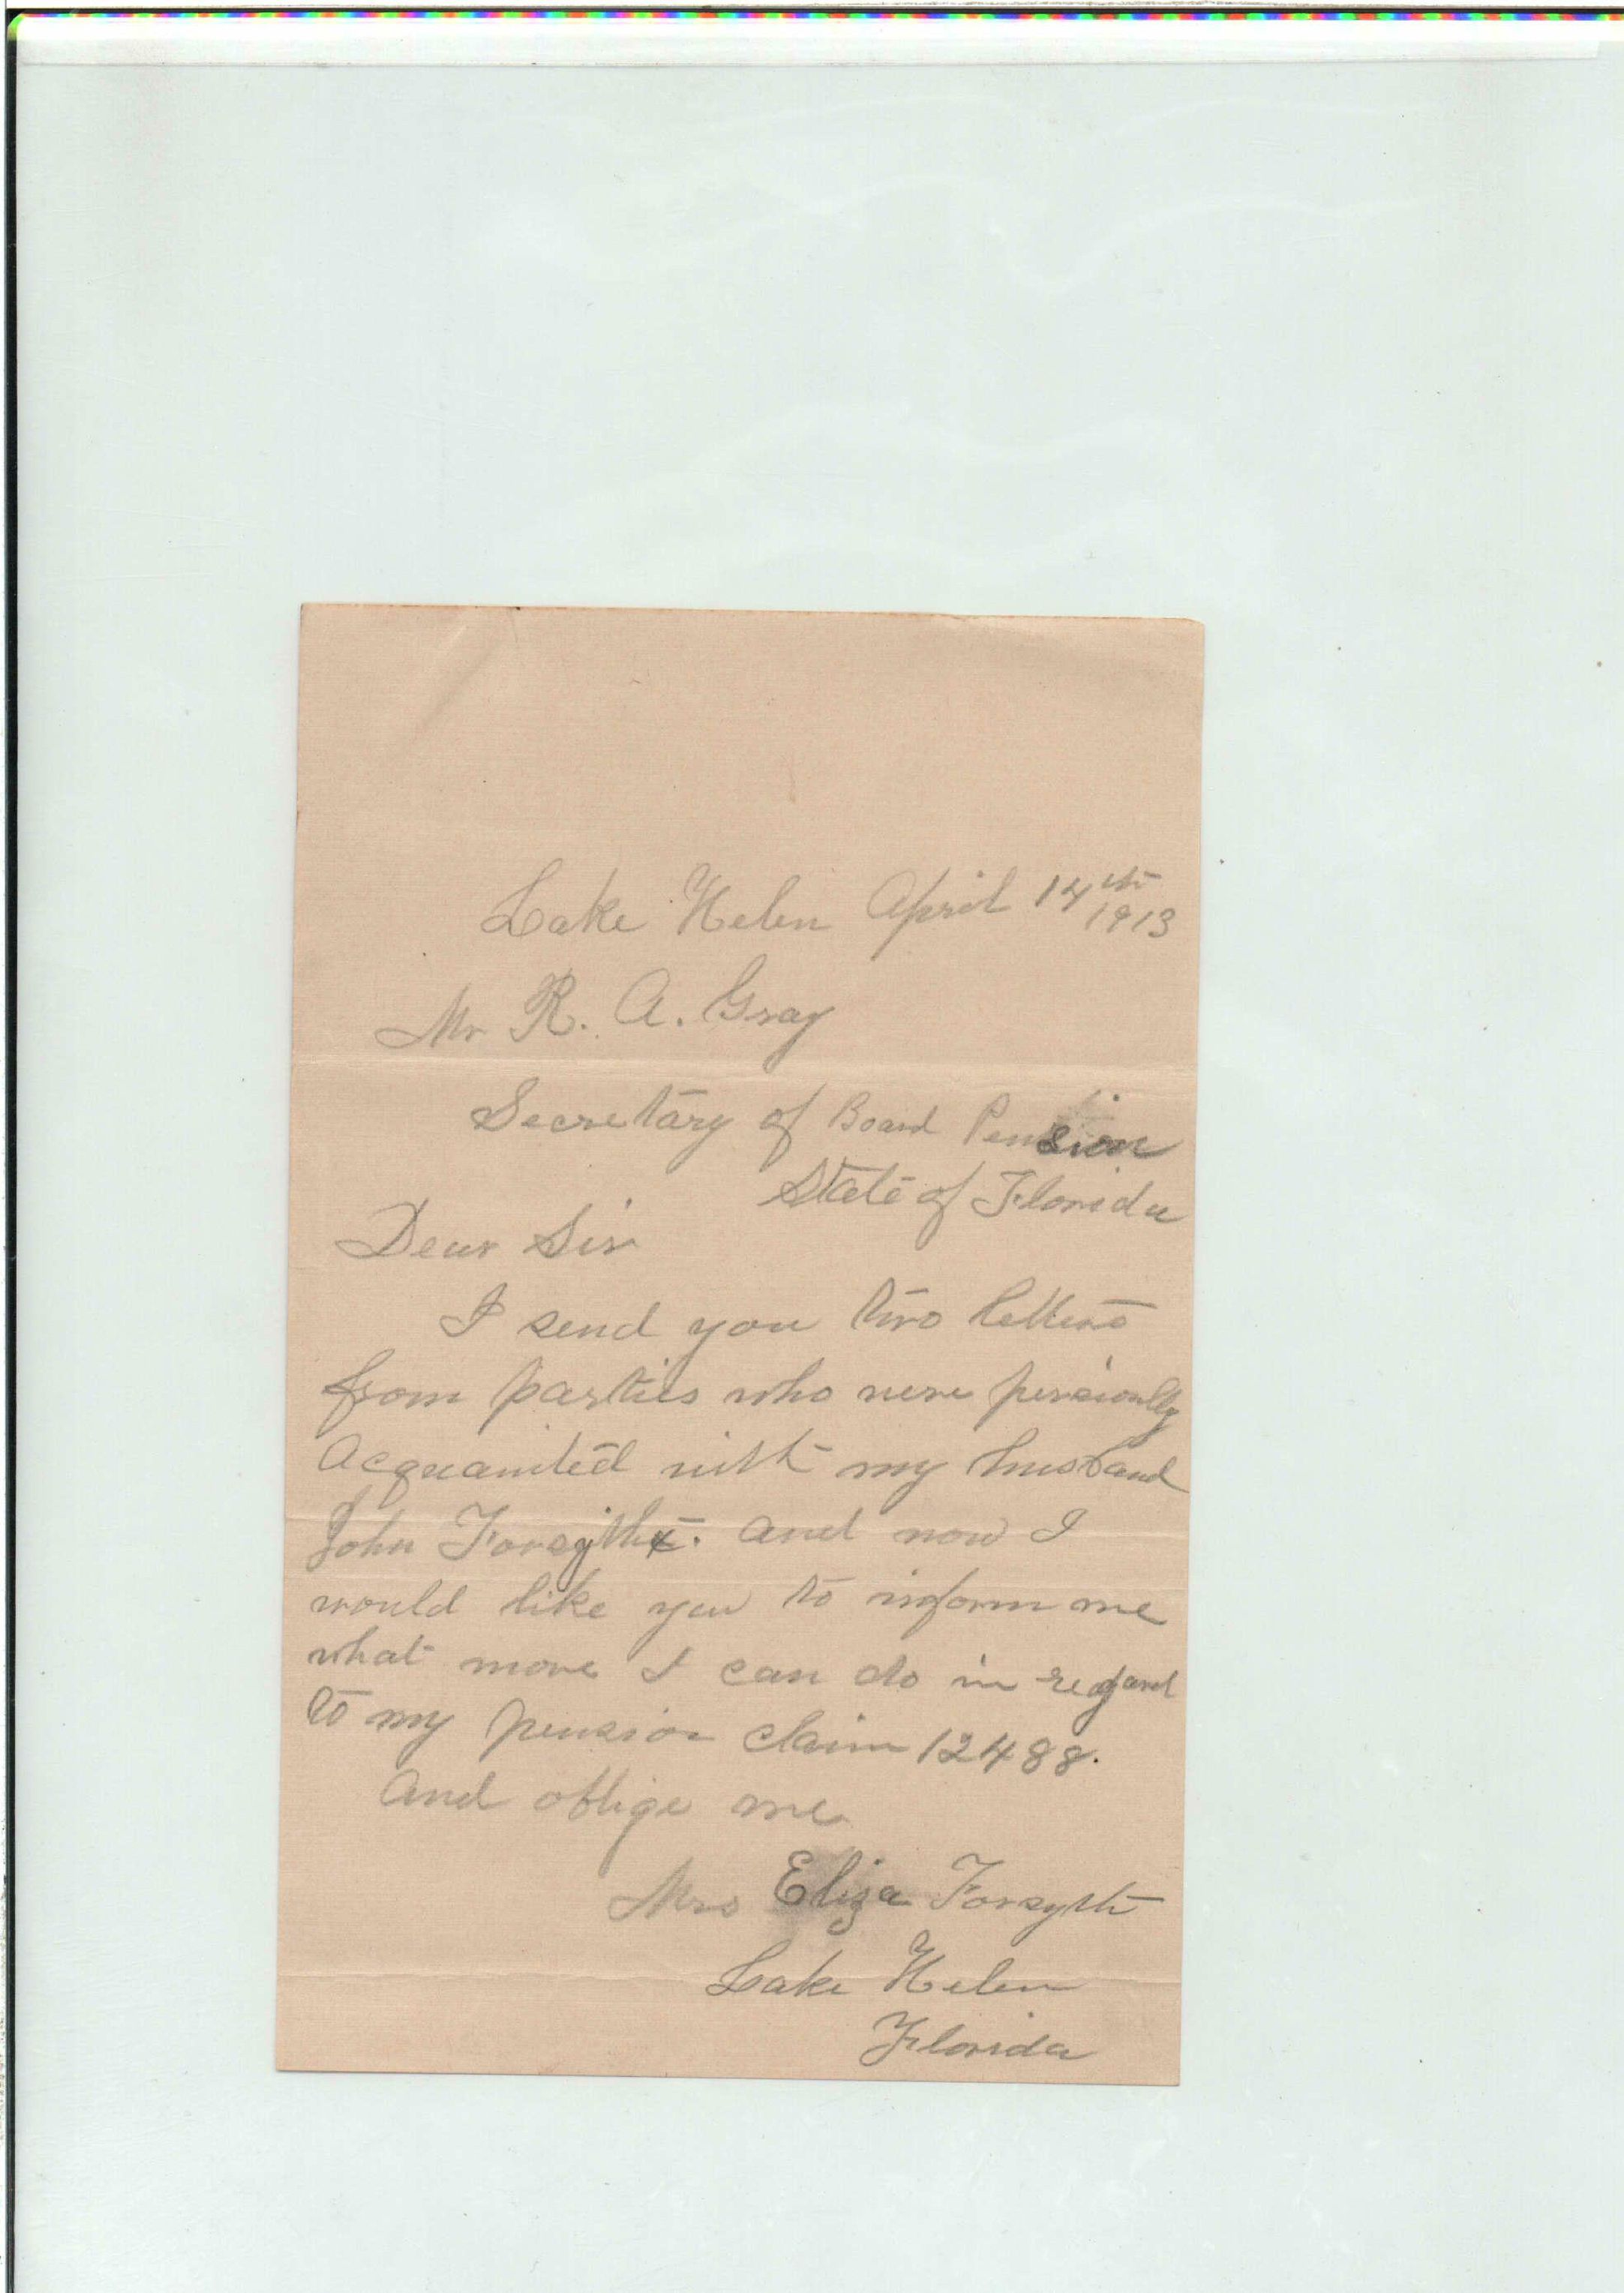 Lake Helen April 14th
1913
Mr R. A. Gray
Secretary of Board Pension
State of Florida
Dear Sir
I send you two letters
from parties who were personlly
Acquainted with my husband
John Forsythe. and now I
would like you to inform me
what more I can do in regard
to my pension claim 12488.
and oblige me
Mrs Eliza Forsyth
Lake Helen
Florida